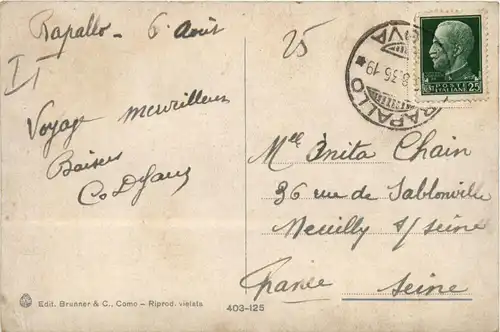 Rapallo - 6 Août
25
Voyage merveilleux
Baisers
Melle Anita Chain
36 rue de Sablonville
Neuilly s/ seine
France Seine
RAPALLO
8.35-19
POSTE
ITALIANE
25
Edit. Brunner & C., Como - Riprod. vietata
403-125